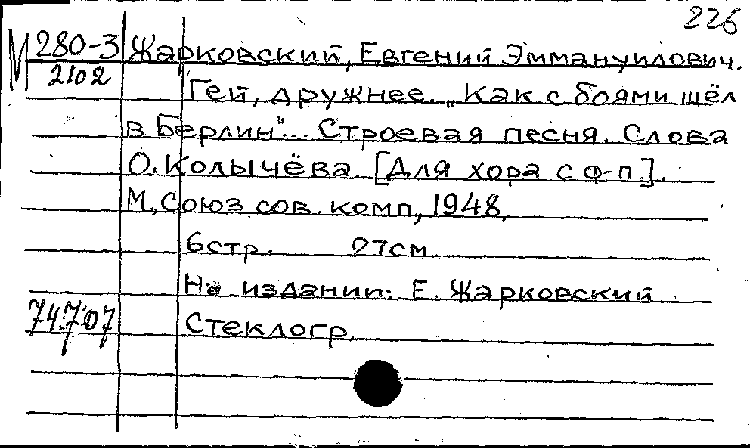 226
М 280-3
2102
Жарковский, Евгений Эммануилович.
Гей, дружнее. „Как с боями шёл
в Берлин"... Строевая песня. Слова
О. Колычёва. [Для хора с ф-п].
М., Союз сов. комп., 1948.
6 стр. 27 см
На издании: Е. Жарковский
74707
Стеклогр.